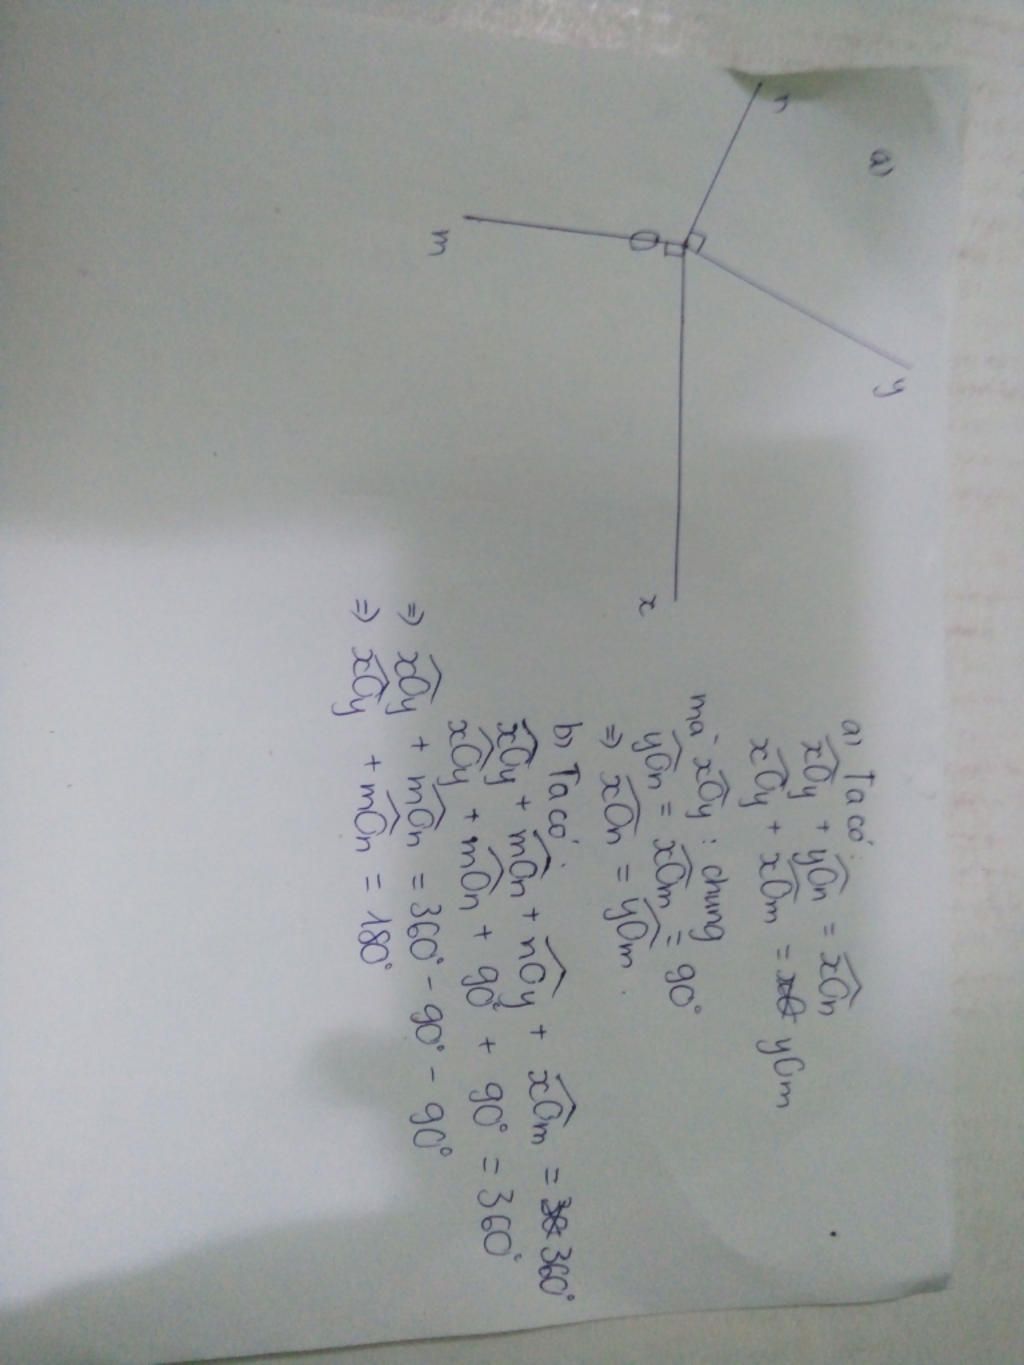 a)
n
y
O
m
x
a) Ta có:
xOy + yOn = xOn
xOy + xOm = yOm
mà xOy : chung
yOn = xOm = 90°
=> xOn = yOm.
b) Ta có:
xOy + mOn + nOy + xOm = 360°
xOy + mOn + 90° + 90° = 360°
=> xOy + mOn = 360° - 90° - 90°
=> xOy + mOn = 180°